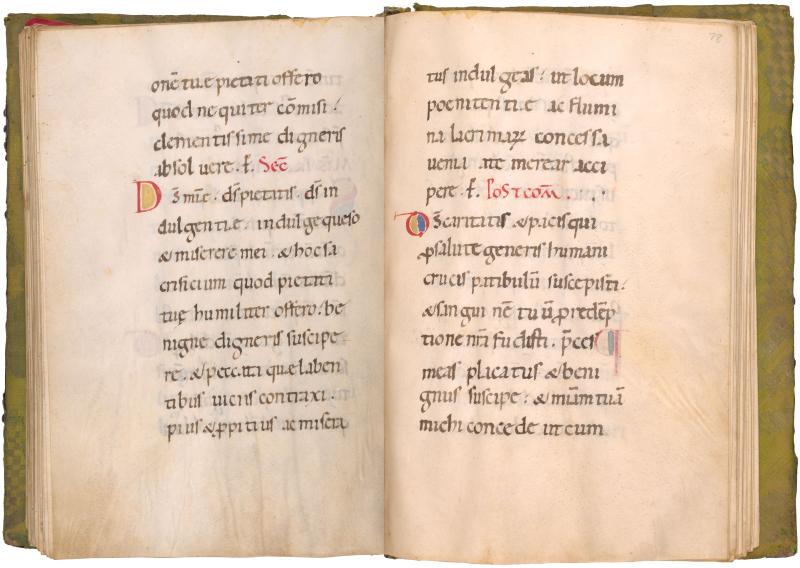 onē tuę pietati offero
quod nequiter cōmisi .
clementissime digneris
absolvere . ꝑ. Sec̄
Ds̄ mīe . ds̄ pietatis . ds̄ in
dulgentię . indulge queso
& miserere mei . & hoc sa
crificium quod pietati
tuę humiliter offero . be
nigne digneris suscipe
re . & peccati quę laben
tibus viciis contraxi .
pius & ꝓpitius ac misera
78
tus indulgeas . ut locum
poenitentię ac flumi
na lacrimaꝝ concessa
venia a te merear acci
pere . ꝑ. Postcom̄ .
Ds̄ caritatis & pacis qui
ꝓ salute generis humani
crucis patibulū suscepisti .
& sanguinē tuū ꝓ redēp
tione nr̄i fudisti . p̄ces
meas placatus & beni
gnus suscipe . & mīam tuā
michi concede ut cum